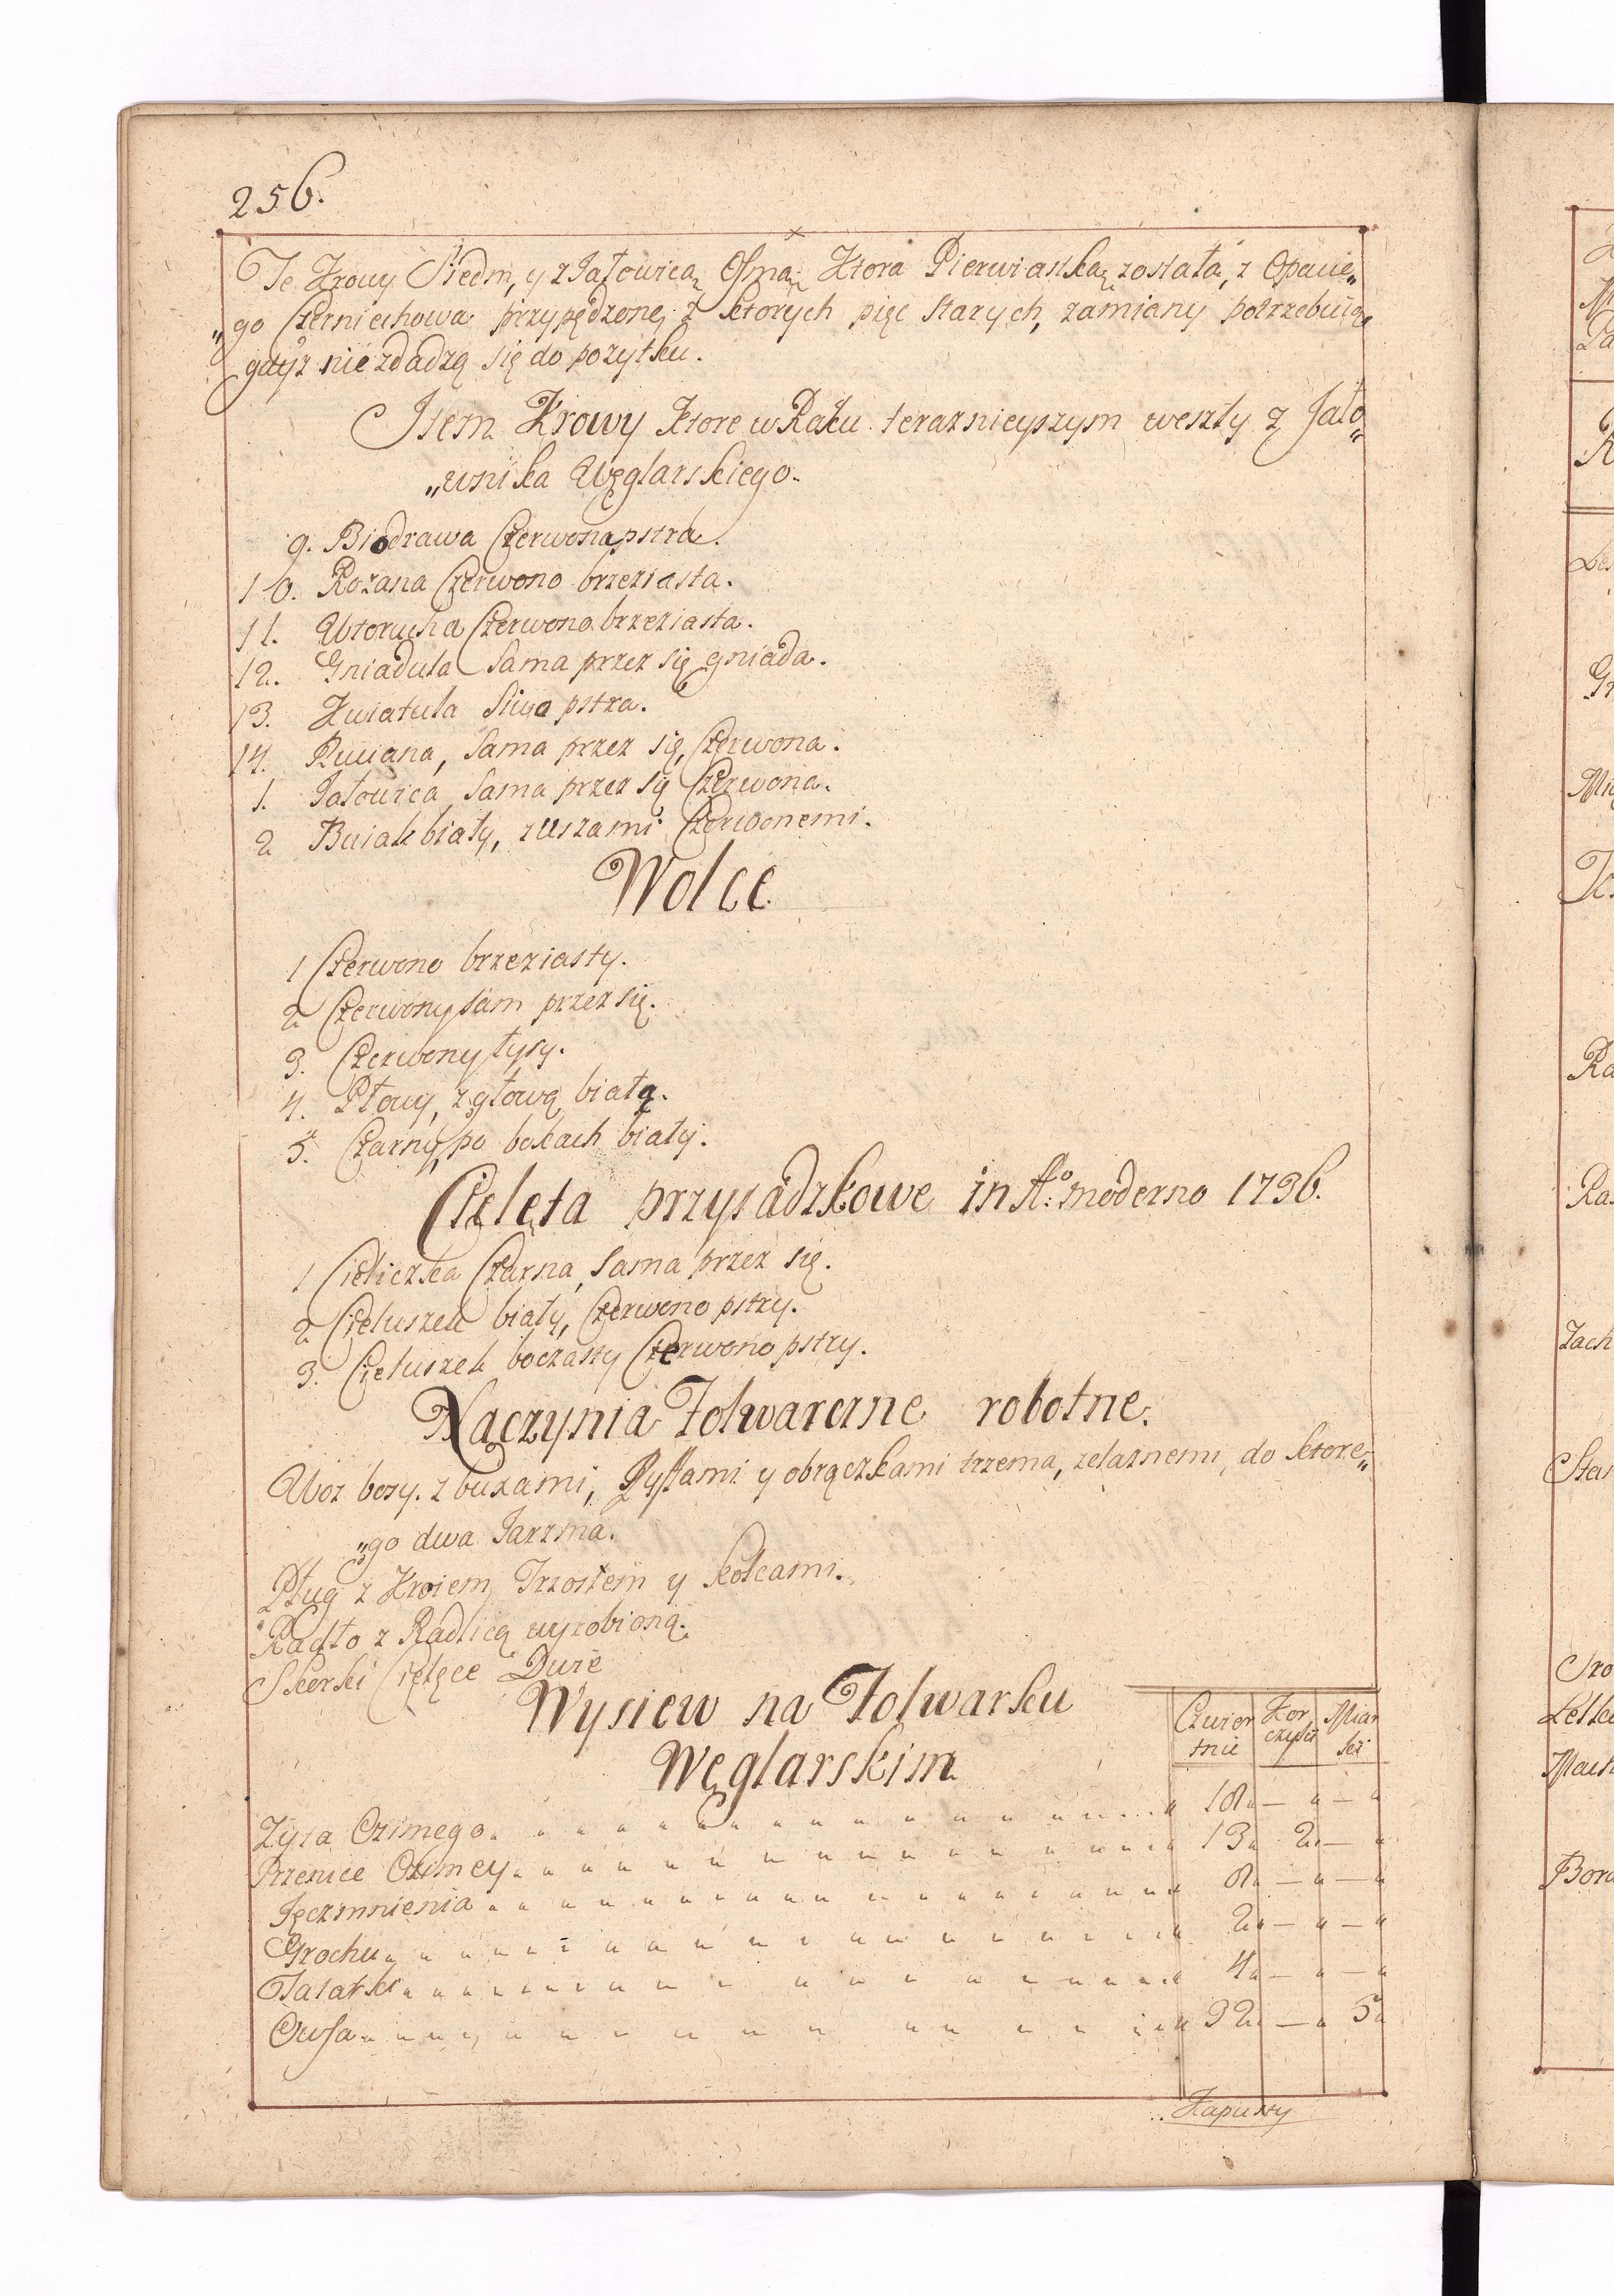 256.
Te Krowy Siedm, y z Jałowicą Osmą Ktora Pierwiastką została, z Opacie„
„go Czerniechowa przypędzone, z ktorych pięc starych, zamiany potrzebuią
gdyż nie zdadzą się do pozytku.
Item Krowy Ktore w Roku teraznieyszym weszły z Jało„
„wnika Węglarskiego.
9. Biodrawa Czerwona pstra.
10. Rożana Czerwono brzeziasta.
11. Wtorucha Czerwono brzeziasta.
12. Gniadula Sama przez się gniada.
13. Kwiatula Siwo pstra.
14. Rumiana, Sama przez się, Czerwona.
1. Jałowica Sama przez się Czerwona.
2 Buiak biały, z uszami Czerwonemi.
Wolce
1 Czerwono brzeziasty.
2 Czerwony sam przez się.
3. Czerwony łysy.
4. Płowy, z głową białą.
5. Czarny, po bokach biały.
Cielęta przysadzkowe in Ao: moderno 1796.
1 Cieliczka Czarna, Sama przez się.
2 Cieluszek biały, Czerwono pstry.
3. Cieluszek boczasty Czerwono pstry.
Naczynia Folwarczne robotne.
Woz bosy z buxami, Ryffami y obrączkami trzema, zelaznemi, do ktore„
„go dwa Jarzma.
Pług z Kroiem, Trzosłem y kołkami.
Radło z Radlicą wyrobioną.
Skorki Cielęce Dwie
Wysiew na Folwarku
Węglarskim
Czwier Kor Miar
tnie czyki ki
Zyta Ozimego 18 — —
Pszenice Ozimey 13 2 —
Jęczmnienia 8 — —
Grochu 2 — —
Tatarki 4 — —
Owsa 32 — 5
Kapusty